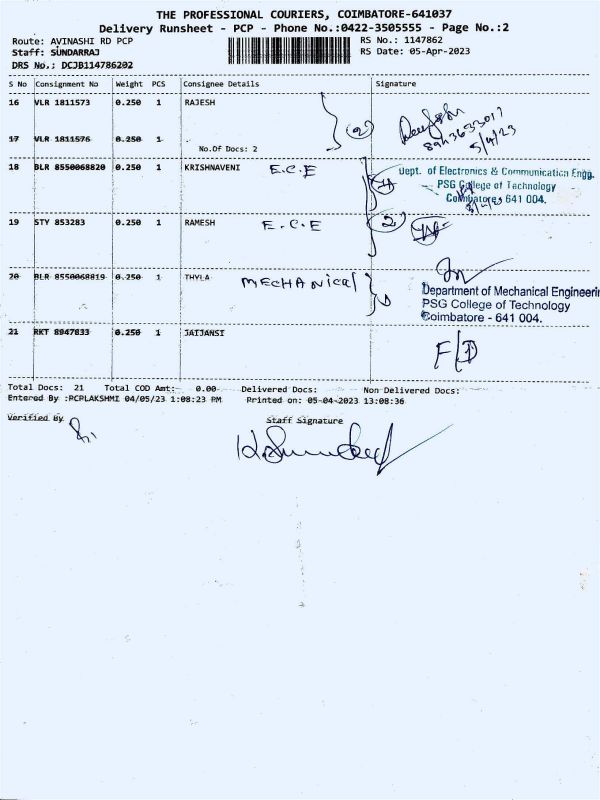 THE PROFESSIONAL COURIERS, COIMBATORE-641037
Delivery Runsheet - PCP - Phone No.:0422-3505555 - Page No.:2
Route: AVINASHI RD PCP
Staff: SUNDARRAJ
DRS No,: DCJB114786202
RS No.: 1147862
RS Date: 05-Apr-2023
S No Consignment No Weight PCS Consignee Details Signature
16 VLR 1811573 0.250 1 RAJESH
(2)
5/4/23
17 VLR 1811576 0.250 1
No.Of Docs: 2
18 BLR 8550068820 0.250 1 KRISHNAVENI E.C.E
Dept. of Electronics & Communication Engg.
PSG College of Technology
Coimbatore - 641 004.
19 STY 853283 0.250 1 RAMESH E.C.E (2)
20 BLR 8550068819 0.250 1 THYLA MECHANical
Department of Mechanical Engineerin
PSG College of Technology
Coimbatore - 641 004.
21 RKT 8947833 0.250 1 JAIJANSI
F/D
Total Docs: 21 Total COD Amt: 0.00 Delivered Docs: Non Delivered Docs:
Entered By :PCPLAKSHMI 04/05/23 1:08:23 PM Printed on: 05-04-2023 13:08:36
Verified By
Staff Signature